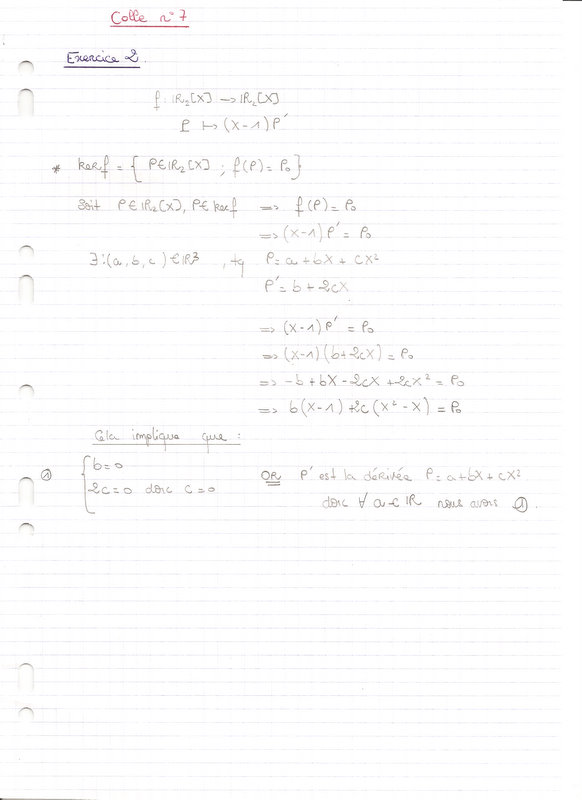 Colle n°7
Exercice 2.
f : IR₂[X] → IR₂[X]
P ↦ (X-1)P'
* Kerf = { P∈IR₂[X] ; f(P) = P₀ }
Soit P∈IR₂[X], P∈Kerf => f(P) = P₀
=> (X-1)P' = P₀
∃!(a,b,c)∈IR³, tq P = a+bX+cX²
P' = b+2cX
=> (X-1)P' = P₀
=> (X-1)(b+2cX) = P₀
=> -b+bX-2cX+2cX² = P₀
=> b(X-1)+2c(X²-X) = P₀
Cela implique que :
① { b=0 OR P' est la dérivée P=a+bX+cX²
2c=0 donc c=0 donc ∀ a∈IR nous avons ①.